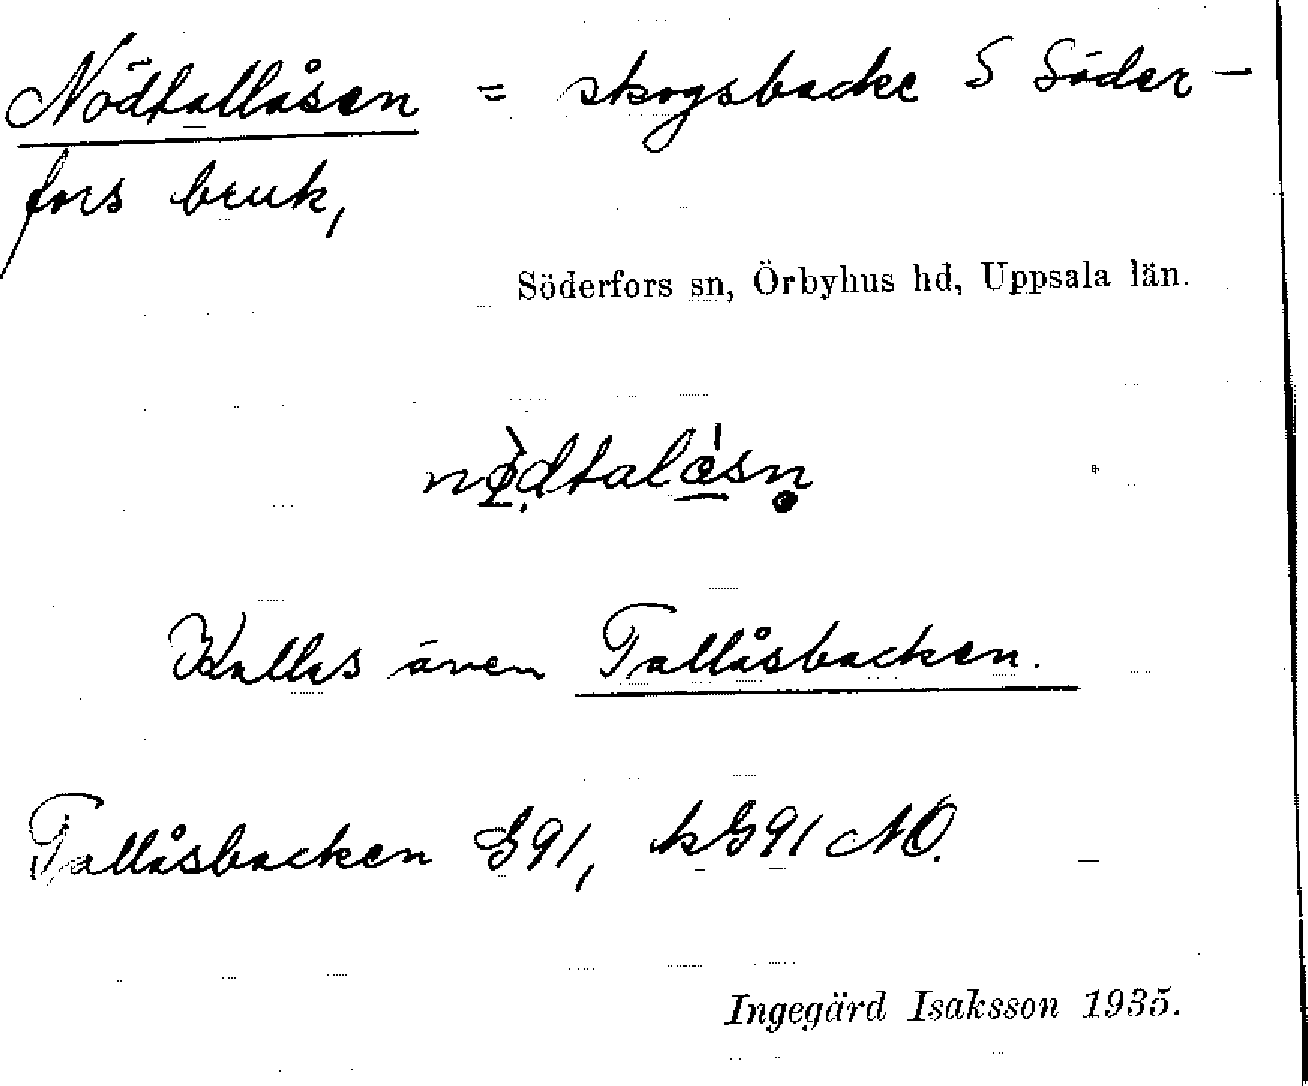 Nödtallåsen = skogsbacke S Söder-
fors bruk,
Söderfors sn, Örbyhus hd, Uppsala län.
Kallas även Tallåsbacken.
Tallåsbacken G91, kG91 NO.
Ingegärd Isaksson 1935.